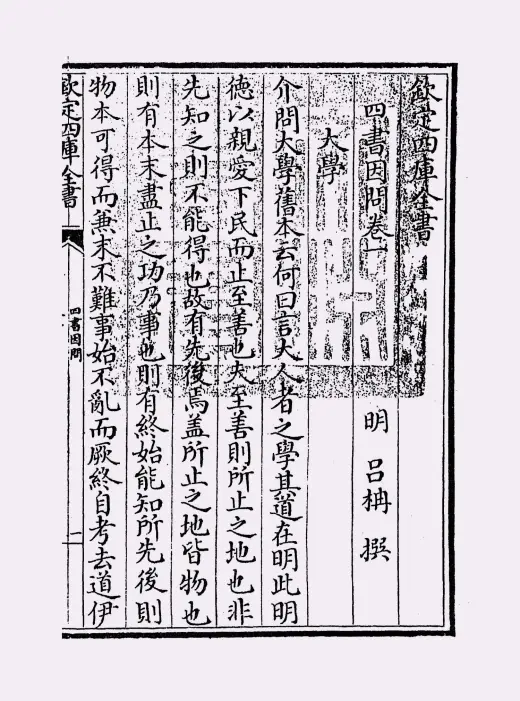 欽定四庫全書
四書因問卷一
明 呂柟 撰
大學
介問大學舊本云何曰言大人者之學其道在明此明
德以親愛下民而止至善也夫至善則所止之地也非
先知之則不能得也故有先後焉盖所止之地皆物也
則有本末盡止之功乃事也則有終始能知所先後則
物本可得而兼末不難事始不亂而厥終自考去道伊
欽定四庫全書
四書因問
一